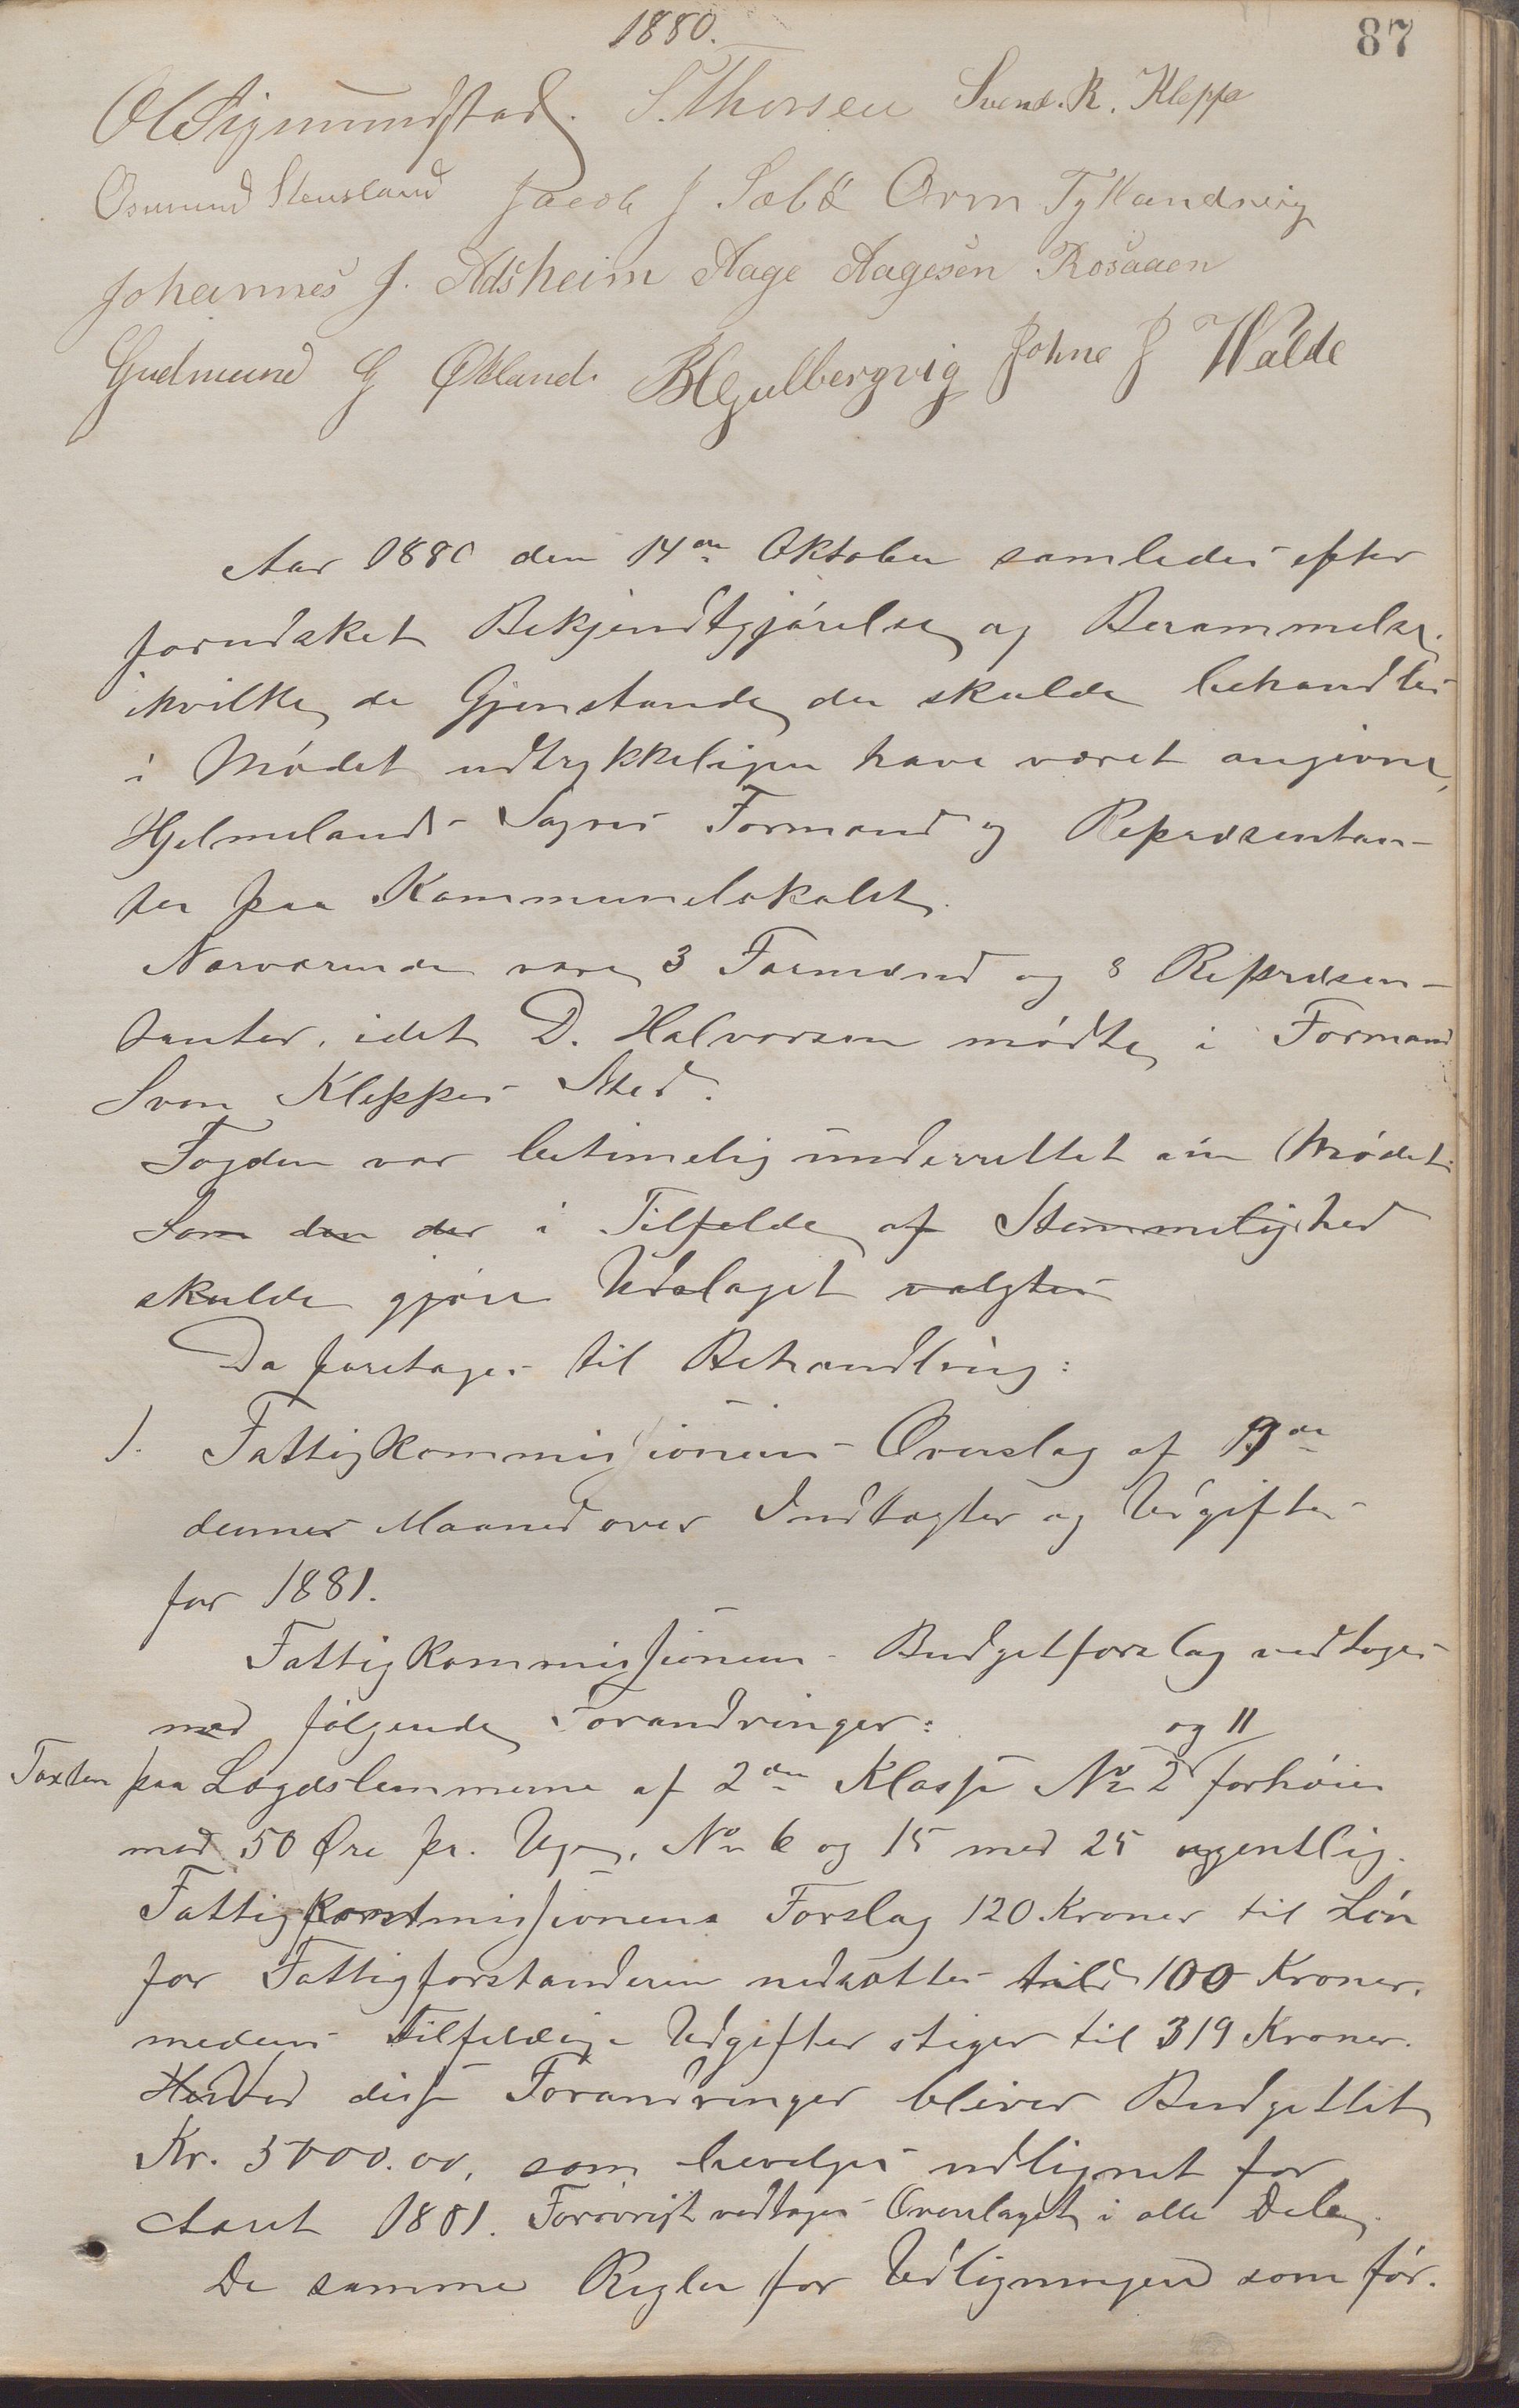 1880.
87
O Sigmundstad. S. Thorsen Svend. R. Kleppa
Osmund Stensland Jacob J Sæbø Orm Tytlandsvig
Johannes J. Adsheim Aage Aagesen Rosaaen
Gudmund G Økland. B H Gullbergvig Johne J Walde
Aar 1880 den 14de Oktober samledes efter
forudsket Bekjendtgjørelse og Berammelse,
i hvilke de Gjenstande der skulde behandles
i Mødet udtrykkeligen have været angivne,
Hjelmelands Sogns Formænd og Repræsentan-
ter paa Kommunelokalet.
Nærværende vare 3 Formænd og 8 Repræsen-
tanter, idet D. Halvorsen mødte i Formand
Sven Kleppes Sted.
Fogden var betimelig underrettet om Mødet.
Som den der i Tilfælde af Stemmelighed
skulde gjøre Udslaget valgtes
Da foretages til Behandling:
1. Fattigkommissionens Overslag af 13de
dennes Maaned over Indtægter og Udgifter
for 1881.
Fattigkommissionens Budgetforslag vedtoges
med følgende Forandringer:
og 11
Taxten paa Lægdslemmerne af 2den Klasse No 2 forhøies
med 50 Øre pr. Uge, No 6 og 15 med 25 ugentlig.
Fattigkommissionens Forslag 120 Kroner til Løn
for Fattigforstanderen nedsættes til 100 Kroner,
medens tilfældige Udgifter stiger til 319 Kroner.
Ved disse Forandringer bliver Budgettet
Kr. 5000.00, som bevilges udlignet for
Aaret 1881. Forøvrigt vedtages Overslaget i alle Dele.
De samme Regler for Udligningen som før.